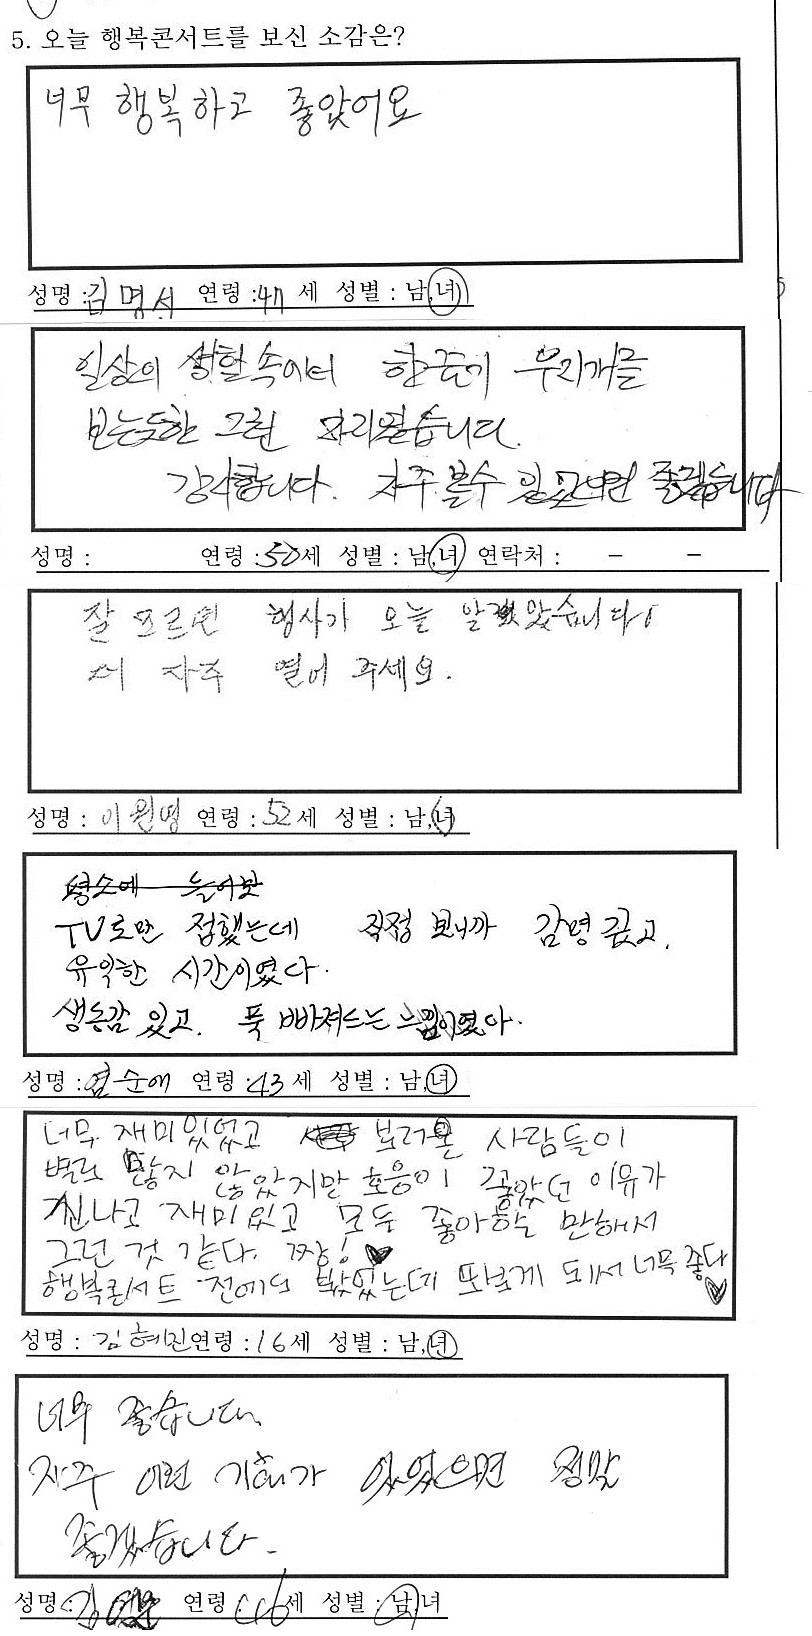 5. 오늘 행복콘서트를 보신 소감은?
너무 행복하고 좋았어요
성명 : 김명서 연령 : 47 세 성별 : 남,녀
일상의 생활속에서 한줄기 무지개를
보는듯한 그런 자리였습니다.
감사합니다. 자주 볼수 있으면 좋겠습니다
성명 : 연령 : 50세 성별 : 남,녀 연락처 : － －
잘 모르면 행사가 오늘 알았습니다.
더 자주 열어 주세요.
성명 : 이원영 연령 : 52세 성별 : 남,녀
평소에 늘어보
TV로만 접했는데 직접 보니까 감명 깊고,
유익한 시간이였다.
생동감 있고. 푹 빠져드는 느낌이였다.
성명 : 염순애 연령 : 43 세 성별 : 남,녀
너무 재미있었고 보러온 사람들이
별로 많지 않았지만 호응이 좋았던 이유가
신나고 재미있고 모두 좋아할 만해서
그런 것 같다. 짱! ♥
행복콘서트 전에도 봤었는데 또보게 되서 너무 좋다 ♥
성명 : 김혜진 연령 : 16세 성별 : 남,녀
너무 좋습니다.
자주 이런 기회가 있었으면 정말
좋겠습니다.
성명 : 김 연령 : 46세 성별 : 남,녀